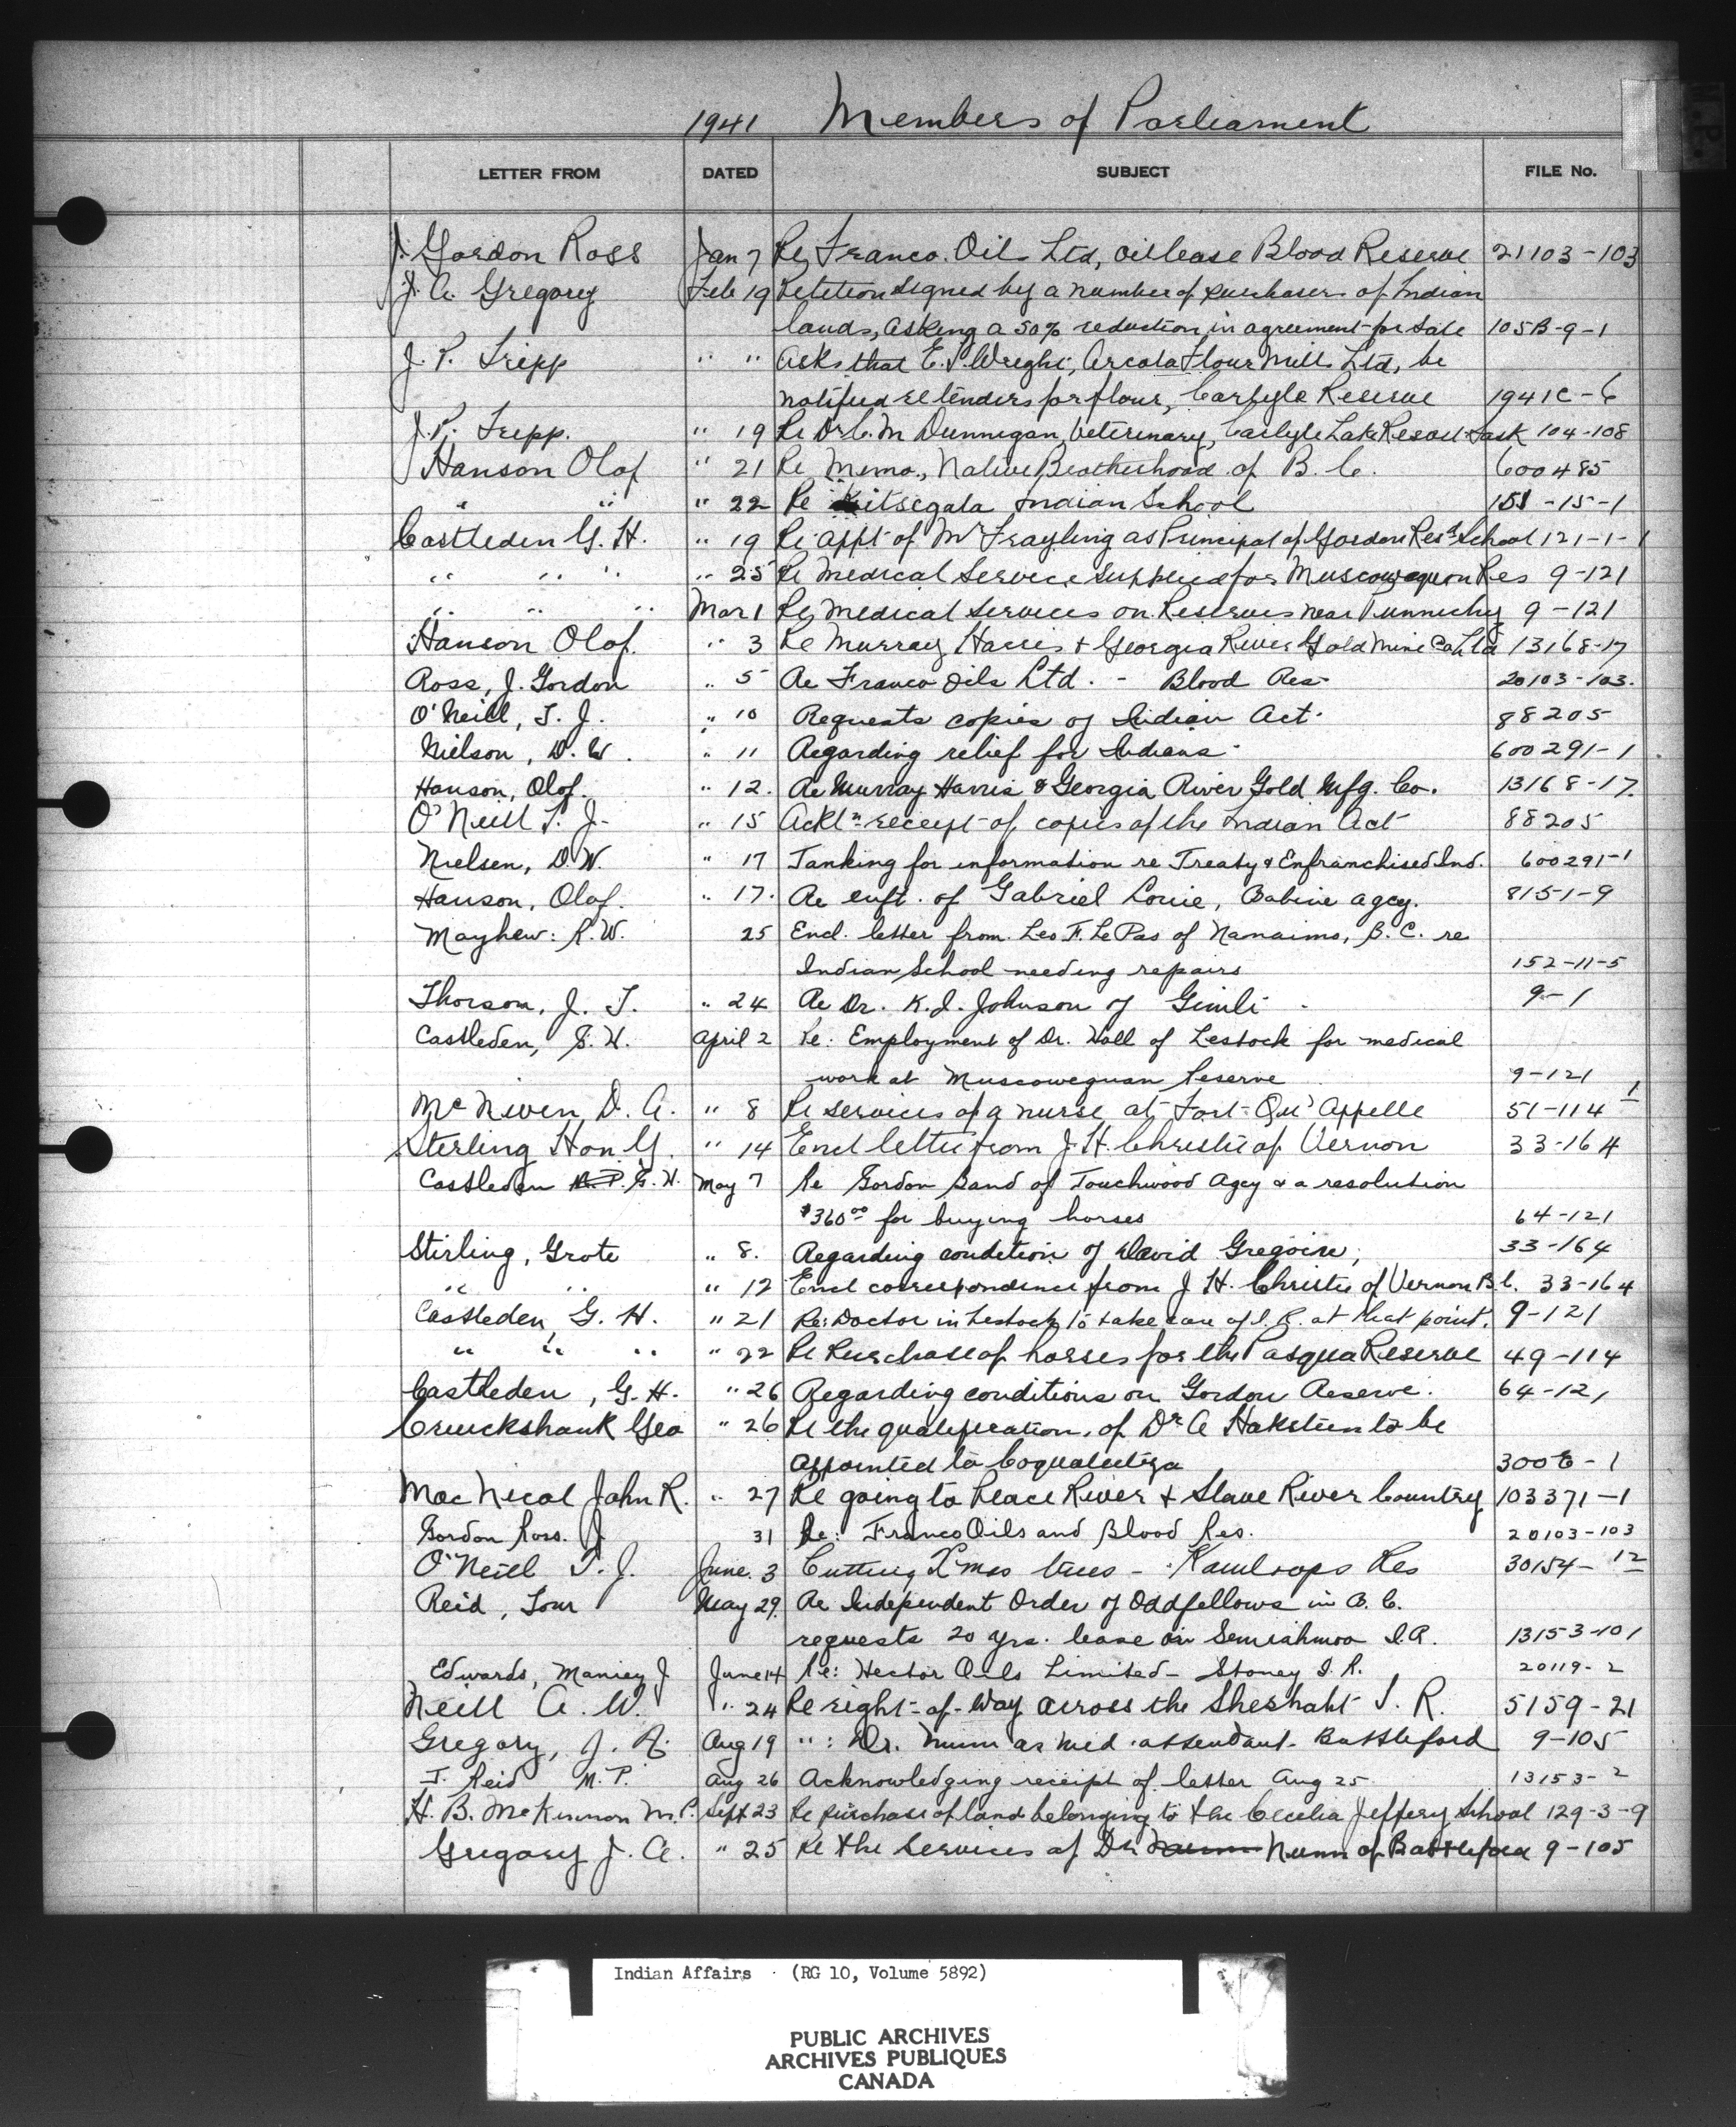 1941 Members of Parliament
LETTER FROM DATED SUBJECT FILE No.
J. Gordon Ross Jan 7 Re Franco. Oil Ltd, oil lease Blood Reserve 21103-103
J. A. Gregory Feb 19 Petition signed by a number of purchasers of Indian
lands, asking a 50% reduction in agreement for sale 105B-9-1
J. P. Tripp " " Asks that E. S. Wright, Arcola Flour Mills Ltd, be
notified re tenders for flour, Carlyle Reserve 1941C-6
J. P. Tripp. " 19 Re Dr C. M Dunnigan, Veterinary, Carlyle Lake Resort Sask 104-108
Hanson Olof " 21 Re Memo., Native Brotherhood of B. C. 600485
" " " 22 Re Kitsegala Indian School 151-15-1
Castleden G. H. " 19 Re appt of Mr Frayling as Principal of Gordon Resd School 121-1-1
" " " " 25 Re Medical Service supplied for Muscowequon Res 9-121
" " " Mar 1 Re Medical Services on Reserves near Punnichy 9-121
Hanson Olof. " 3 Re Murray Harris & Georgia River Gold Mine Co Ltd 13168-17
Ross, J. Gordon " 5 Re Franco Oils Ltd. - Blood Res- 20103-103.
O'Neill, T. J. " 10 Requests copies of Indian Act. 88205
Nielson, D. W. " 11 Regarding relief for Indians. 600291-1
Hanson, Olof. " 12. Re Murray Harris & Georgia River Gold Mfg. Co. 13168-17.
O'Neill T. J- " 15 Ackln receipt of copies of the Indian Act 88205
Nielsen, D.W. " 17 Tanking for information re Treaty & Enfranchised Ind. 600291-1
Hanson, Olof. " 17. Re enft. of Gabriel Louie, Babine agcy. 8151-9
Mayhew: R.W. 25 Encl. letter from Leo F. Le Pas of Nanaimo, B.C. re
Indian School needing repairs 152-11-5
Thorson, J. T. " 24 Re Dr. K. I. Johnson of Gimli - 9-1
Castleden, G. H. April 2 Re: Employment of Dr. Hall of Lestock for medical
work at Muscowequan Reserve 9-121
McNiven D. A. " 8 Re services of a nurse at Fort-Qu'Appelle 51-114 1
Sterling Hon G. " 14 Encl letter from J. H. Christie of Vernon 33-164
Castleden M.P. G. H. May 7 Re Gordon Band of Touchwood Agcy & a resolution
$360.00 for buying horses 64-121
Stirling, Grote " 8. Regarding condition of David Gregoire, 33-164
" " " 12 Encl correspondence from J H. Christie of Vernon B.C. 33-164
Castleden, G. H. " 21 Re: Doctor in Lestock to take care of I. R. at that point. 9-121
" " " " 22 Re Purchase of horses for the Pasqua Reserve 49-114
Castleden, G. H. " 26 Regarding conditions on Gordon Reserve. 64-121
Cruickshank Geo " 26 Re the qualification, of Dr A Haksteen to be
appointed to Coqualeetza 300-1
MacNicol John R. " 27 Re going to Peace River & Slave River Country 103371-1
Gordon Ross. J 31 Re: Franco Oils and Blood Res. 20103-103
O'Neill T. J. June. 3 Cutting X'mas trees - Kamloops Res 30154-12
Reid, Tom May 29. Re Independent Order of Oddfellows in B. C.
requests 20 yrs. lease on Semiahmoo I.R. 13153-101
Edwards, Manley J June 14 Re: Hector Oils Limited - Stoney I. R. 20119-2
Neill A. W. " 24 Re right-of-way across the Sheshaht I. R. 5159-21
Gregory, J. A. Aug 19 " : Dr. Nunn as med. attendant- Battleford 9-105
T. Reid M.P. Aug 26 Acknowledging receipt of letter Aug 25 13153-2
H. B. McKinnon M.P. Sept 23 Re purchase of land belonging to the Cecelia Jeffery School 129-3-9
Gregory J. A. " 25 Re the services of Dr Nunn of Battleford 9-105
Indian Affairs (RG 10, Volume 5892)
PUBLIC ARCHIVES
ARCHIVES PUBLIQUES
CANADA